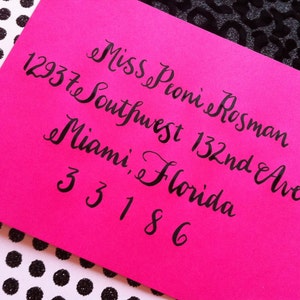 Miss Peoni Rosman
12937 Southwest 132nd Ave
Miami, Florida
33186